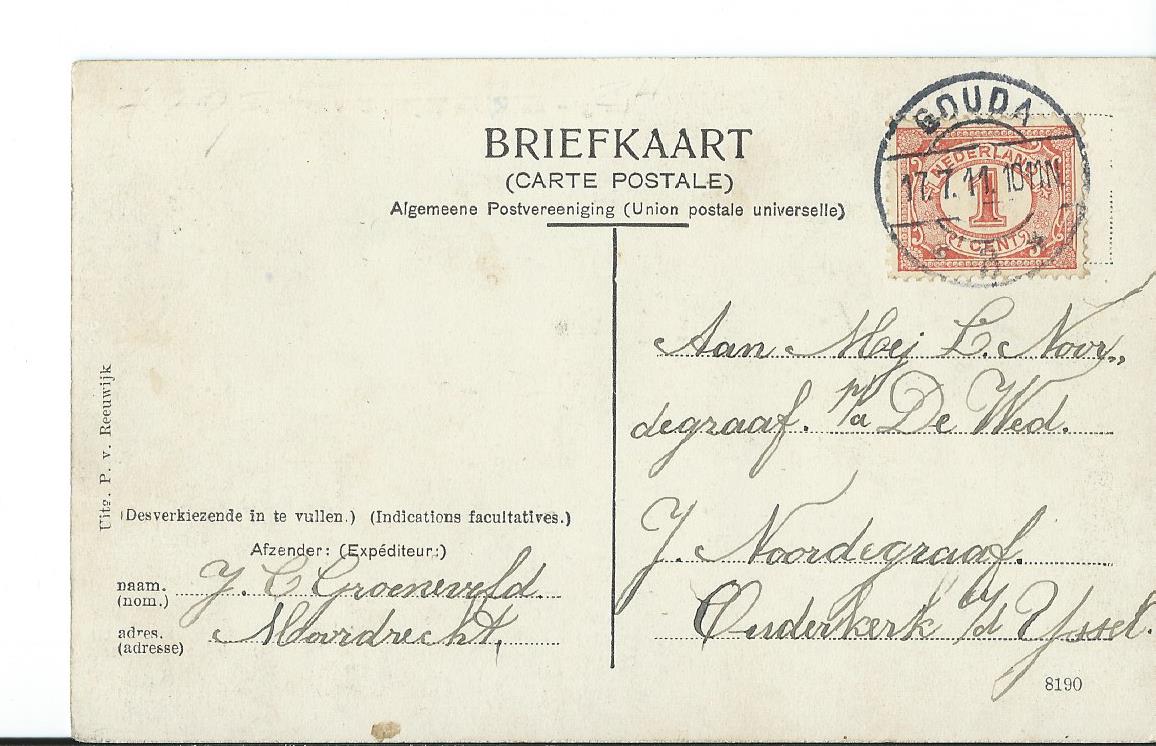 BRIEFKAART
(CARTE POSTALE)
Algemeene Postvereeniging (Union postale universelle)
GOUDA
17.7.11. 10
NEDERLAND
1
1 CENT
Aan Mej L. Noor„
degraaf. p/a De Wed.
J. Noordegraaf.
Ouderkerk a/d Yssel.
Uitg. P. v. Reeuwijk
(Desverkiezende in te vullen.) (Indications facultatives.)
Afzender: (Expéditeur:)
naam. J. C Groeneveld.
(nom.)
adres. Moordrecht,
(adresse)
8190